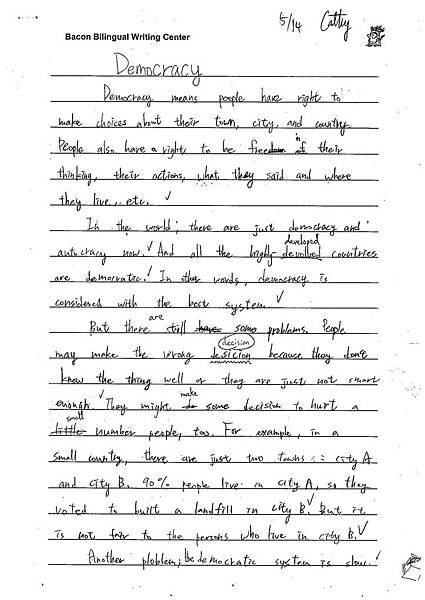 5/14 Cathy
Bacon Bilingual Writing Center
Democracy
Democracy means people have right to
make choices about their town, city, and country.
People also have a right to be freedom of in their
thinking, their actions, what they said and where
they live, etc. ✓
In the world, there are just democracy and
autocracy now. ✓ And all the highly developed countries
are democratic. ✓ In other words, democracy is
considered with the best system. ✓
But there are still have some problems. People
may make the wrong desicion decision because they don't
know the thing well or they are just not smart
enough. ✓ They might do make some decision to hurt a
little small number people, too. For example, in a
small country, there are just two towns: city A
and city B. 90% people live in city A, so they
voted to built a landfill in city B. ✓ But it
is not fair to the persons who live in city B. ✓
Another ploblem; the democratic system is slow. ✓